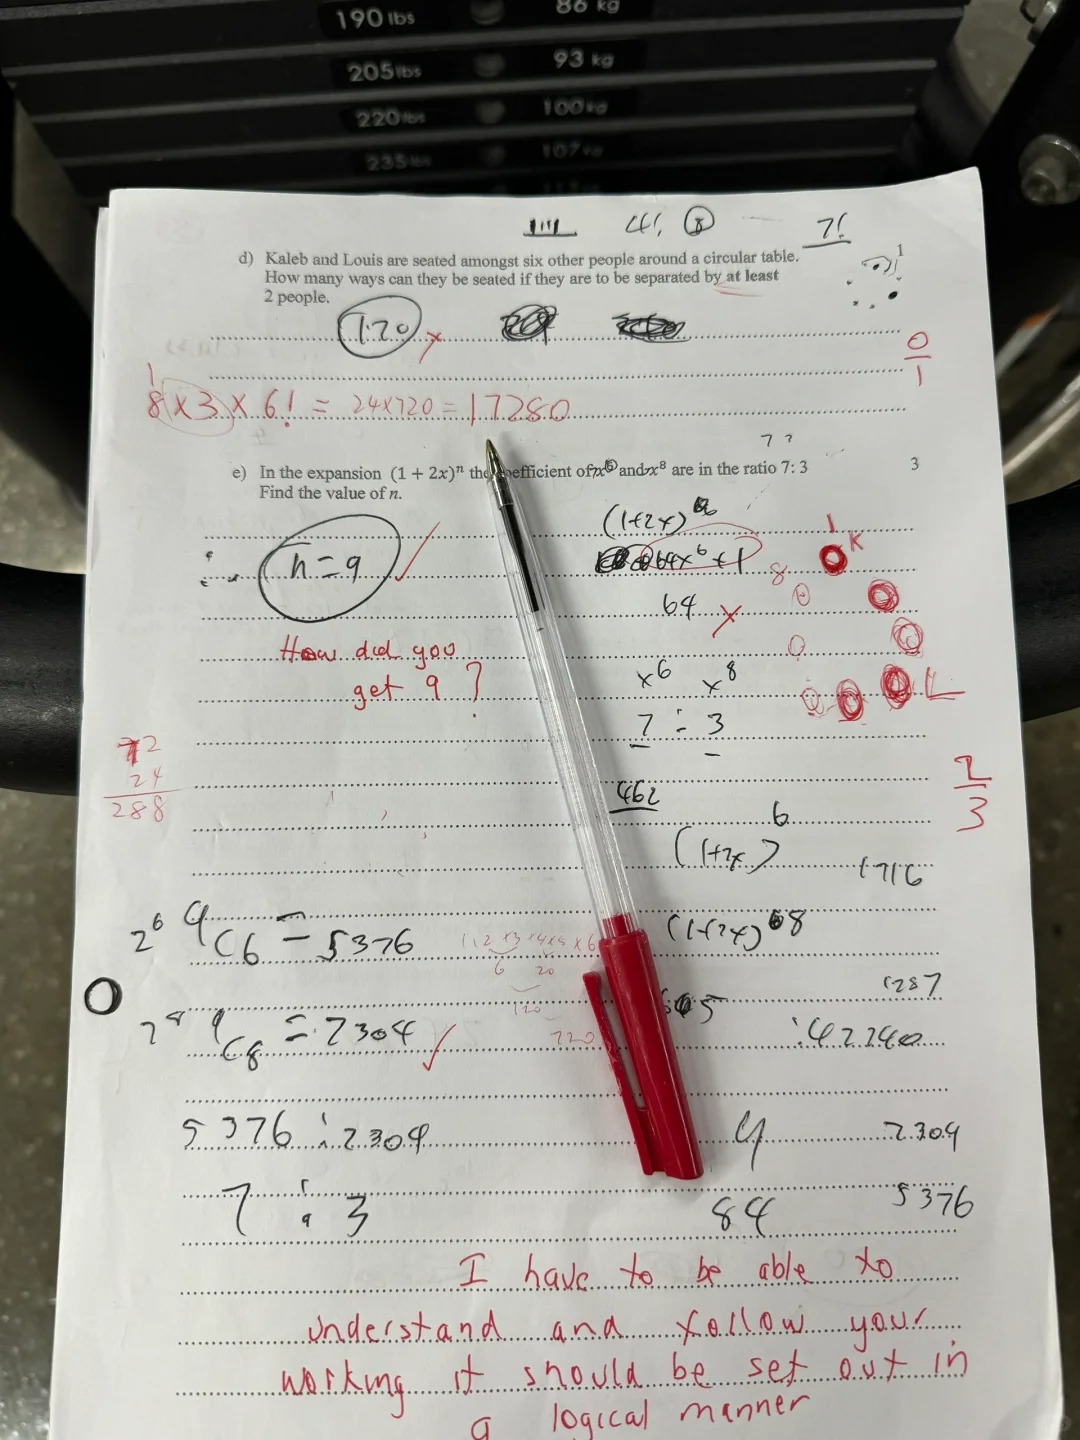 190 lbs 86 kg
205 lbs 93 kg
220 lbs 100 kg
235 lbs 107 kg
4! 8 7!
d) Kaleb and Louis are seated amongst six other people around a circular table. 1
How many ways can they be seated if they are to be separated by at least
2 people.
120 x
0/1
8 x 3 x 6! = 24x720 = 17280
7 ?
e) In the expansion (1 + 2x)ⁿ the coefficient of x⁶ and x⁸ are in the ratio 7: 3 3
Find the value of n.
(1+2x)
n = 9 ✓ 64x⁶ + 1
1 K
8
64 x
How did you
get 9 ?
x⁶ x⁸
L
7 : 3
72
24
288
2/3
462
(1+2x)⁶
1716
2⁶ ⁹C6 = 5376
1.2 x3 x4x5 x6
(1+2x)⁸
6 20
1287
120
2⁸ ⁹C8 = 2304 ✓
720
:42240
5376 : 2304
4 2304
7 : 3
84 5376
I have to be able to
understand and follow your
working it should be set out in
a logical manner